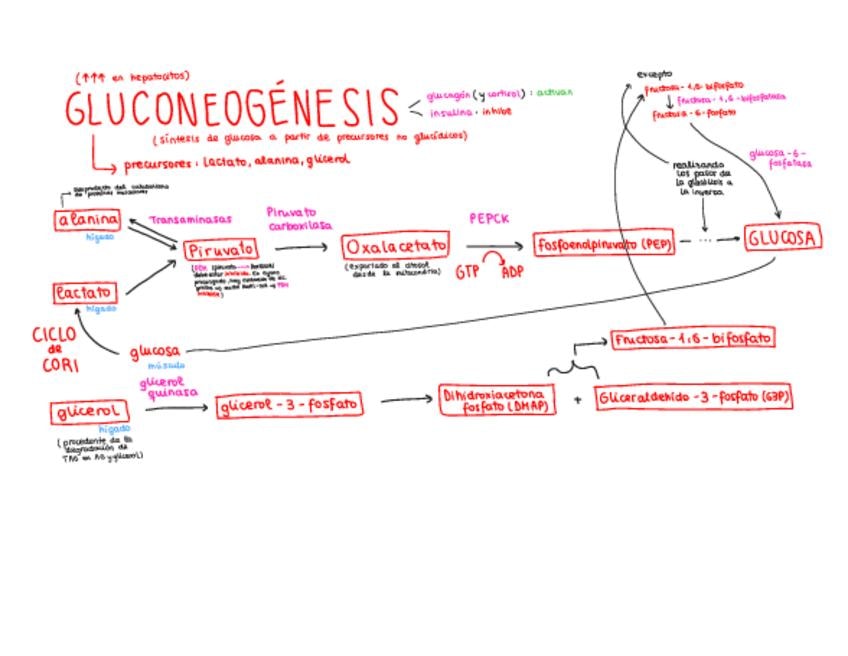 (↑↑↑ en hepatocitos)
GLUCONEOGÉNESIS
glucagón (y cortisol) : activan
insulina : inhibe
(síntesis de glucosa a partir de precursores no glucídicos)
precursores : lactato, alanina, glicerol
excepto
fructosa-1,6-bifosfato
fructosa-1,6-bifosfatasa
fructosa-6-fosfato
glucosa-6-
fosfatasa
realizando
los pasos de
la glucólisis a
la inversa
alanina
hígado
Transaminasas
Piruvato
Piruvato
carboxilasa
Oxalacetato
(exportado al citosol
desde la mitocondria)
PEPCK
GTP
ADP
fosfoenolpiruvato (PEP)
...
GLUCOSA
lactato
hígado
CICLO
de
CORI
glucosa
músculo
Fructosa-1,6-bifosfato
glicerol
hígado
(procedente de la
degradación de
TAG en AG y glicerol)
glicerol
quinasa
glicerol-3-fosfato
Dihidroxiacetona
fosfato (DHAP)
+
Gliceraldehído-3-fosfato (G3P)